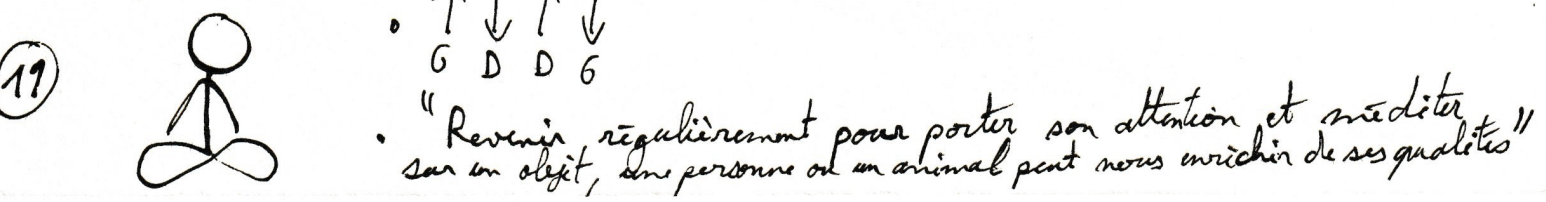 19
↑ ↓ ↑ ↓
G D D G
"Revenir régulièrement pour porter son attention et méditer
sur un objet, une personne ou un animal peut nous enrichir de ses qualités"